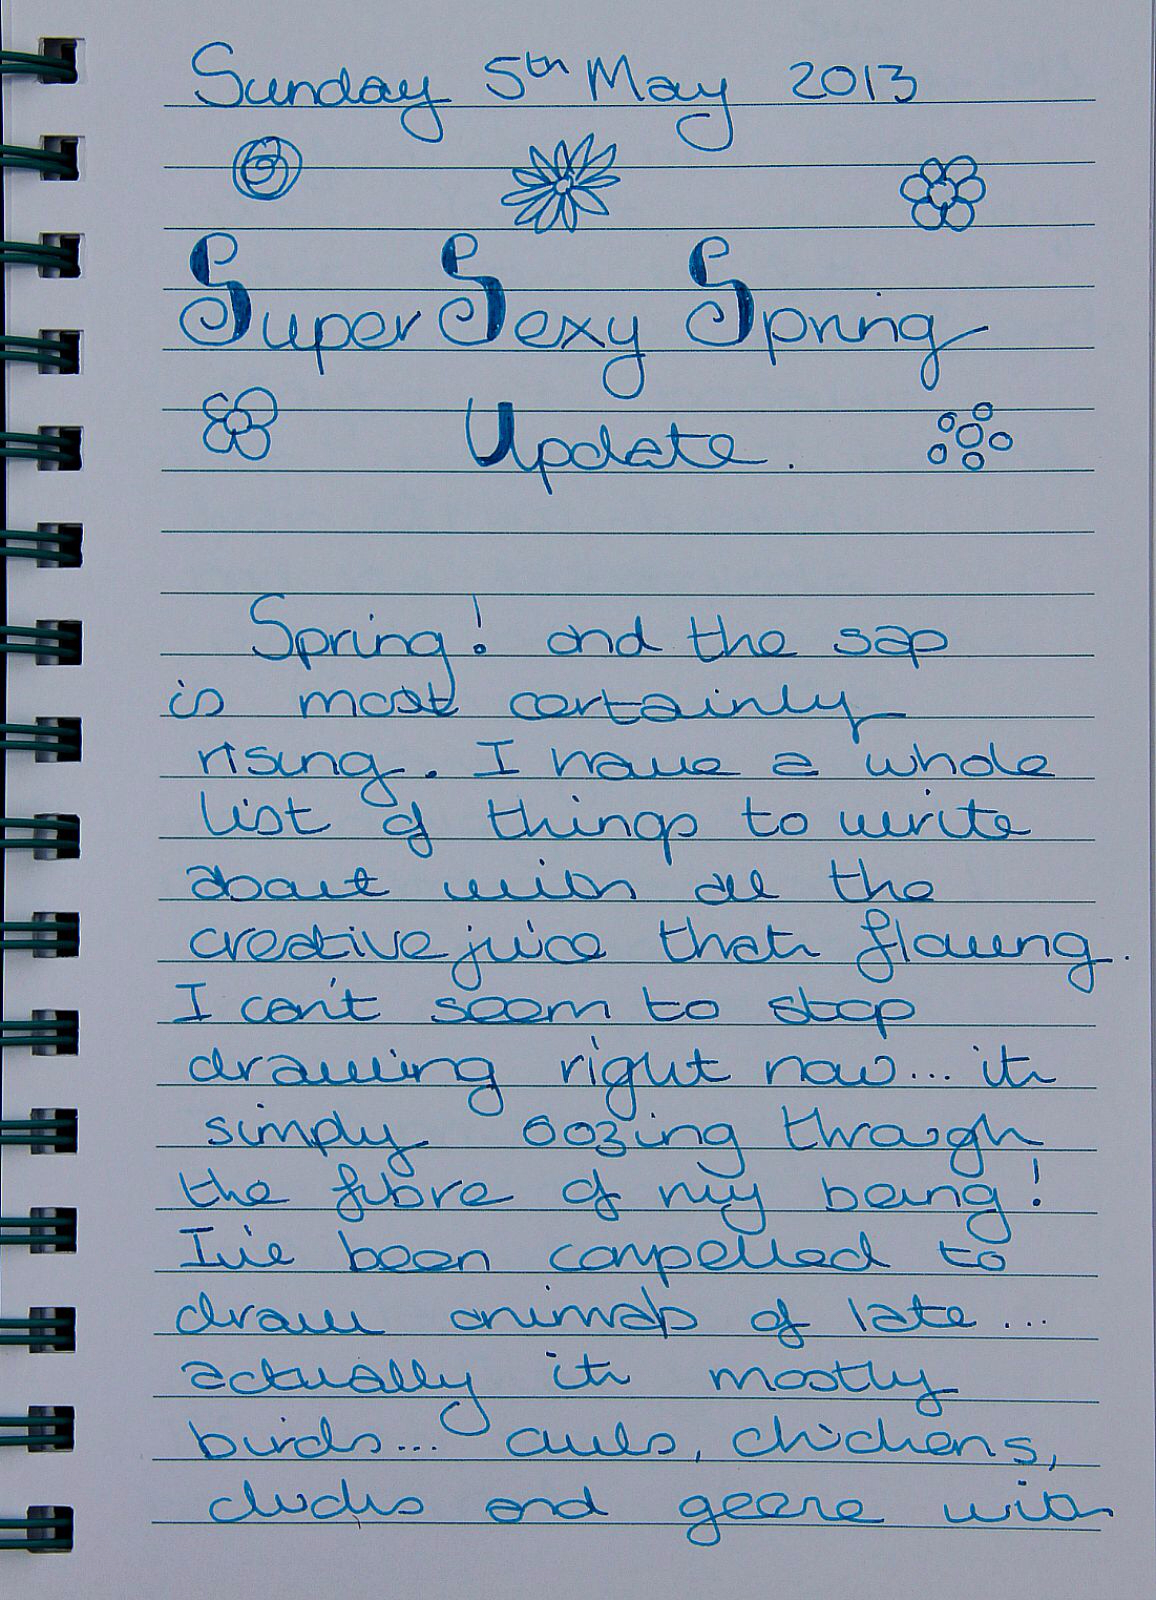 Sunday 5th May 2013
Super Sexy Spring
Update.
Spring! and the sap
is most certainly
rising. I have a whole
list of things to write
about with all the
creative juice that's flowing.
I can't seem to stop
drawing right now... it's
simply oozing through
the fibre of my being!
I've been compelled to
draw animals of late...
actually it's mostly
birds... owls, chickens,
ducks and geese with